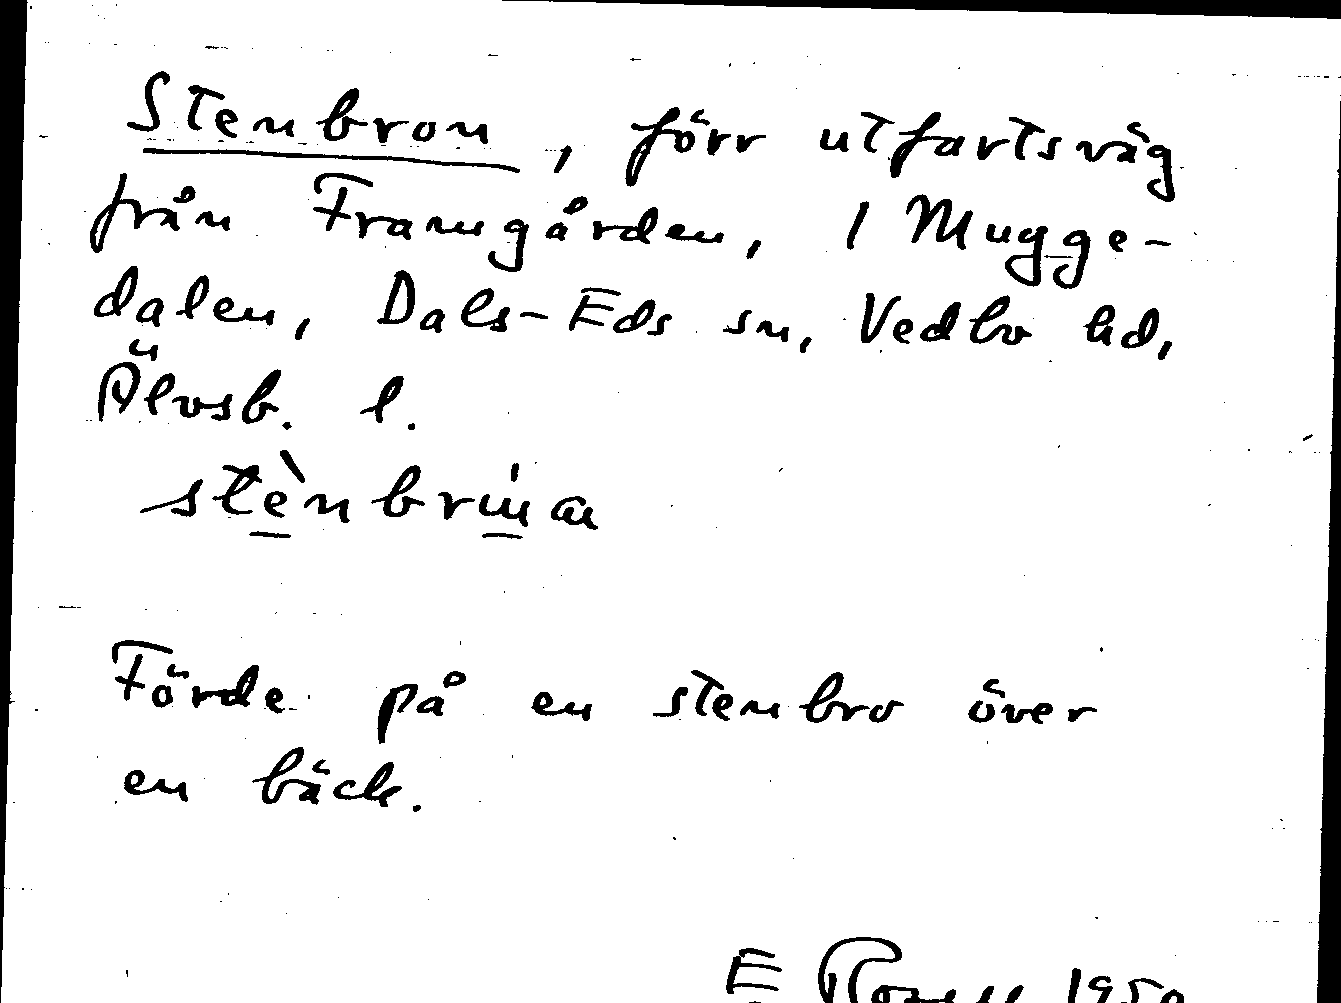 Stenbron, förr utfartsväg
från Framgården, 1 Mugge-
dalen, Dals-Eds sn, Vedbo hd,
Älvsb. l.
Förde på en stenbro över
en bäck.
E 195